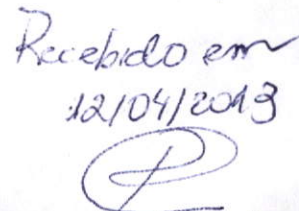 Recebido em
12/04/2013